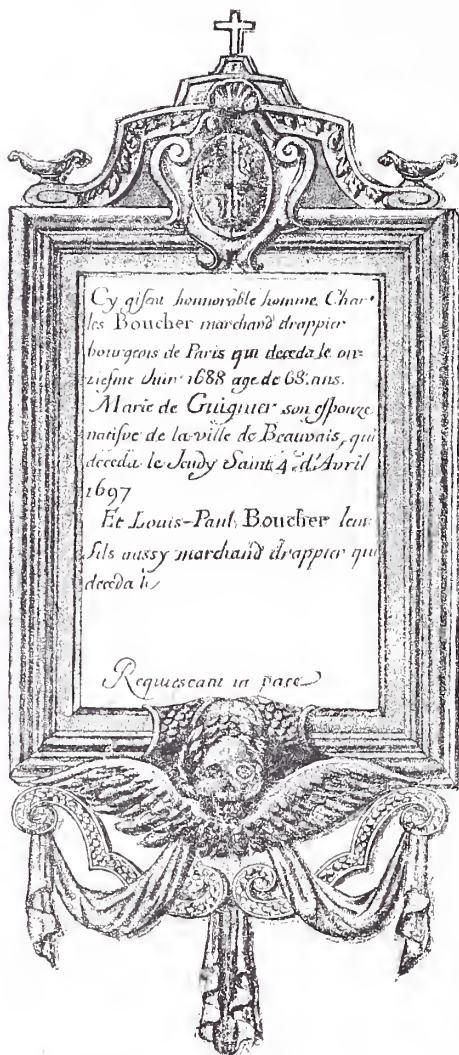 Cy gisent honnorable homme Char-
les Boucher marchand drappier
bourgeois de Paris qui deceda le on-
ziesme Juin 1688 age de 68. ans.
Marie de Guignier son espouze
natifve de la ville de Beauvais, qui
deceda le Jeudy Saint 4e d'Avril
1697
Et Louis-Paul Boucher leur
fils aussy marchand drappier qui
deceda le
Requiescant in pace